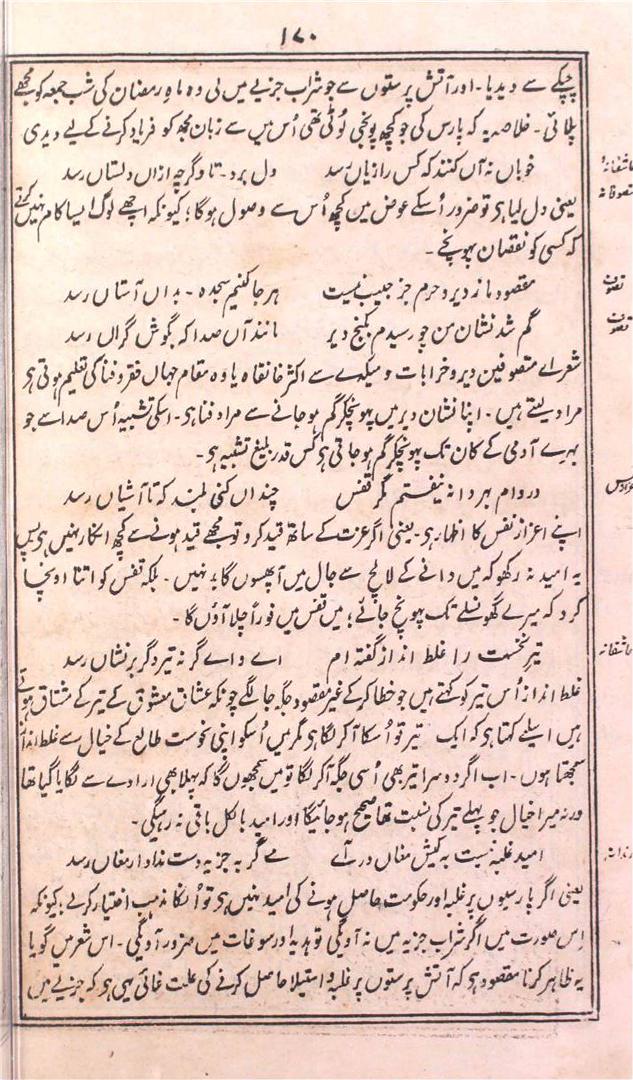 ۱۷۰
چپکے سے دیدیا۔ اور آتش پرستوں سے جو شراب جزیے میں لی وہ ماہِ رمضان کی شب جمعہ کو مجھے
پلائی۔ خلاصہ یہ کہ پارس کی جو کچھ پونجی لُوٹی تھی اُس میں سے زبان مجھ کو فریاد کرنے کے لیے دیدی
خوباں نہ آں کنند کہ کس را زیاں رسد دل برد۔ تا دگرچہ ازاں دلستاں رسد
عاشقانہ
معشوقانہ
یعنی دل لیا ہی تو ضرور اُسکے عوض میں کچھ اُس سے وصول ہوگا؛ کیونکہ اچھے لوگ ایسا کام نہیں کرتے
کہ کسی کو نقصان پہونچے۔
مقصود ما ز دیر و حرم جز حبیب نیست ہر جا کنیم سجدہ۔ بداں آستاں رسد
تصوف
گم شد نشان من چو رسیدم بکنج دیر مانند آں صدا کہ بگوش گراں رسد
تصوف
شعراے متصوفین دیر و خرابات و میکدے سے اکثر خانقاہ یا وہ مقام جہاں فقر و فنا کی تعلیم ہوتی ہی
مراد لیتے ہیں۔ اپنا نشان دیر میں پہونچکر گم ہوجانے سے مراد فنا ہی۔ اسکی تشبیہ اُس صدا سے جو
بہرے آدمی کے کان تک پہونچکر گم ہو جاتی ہی کس قدر بلیغ تشبیہ ہی۔
در دام بہر دانہ نیفتم مگر قفس چنداں کنی بلند کہ تا آشیاں رسد
اپنے اعزاز نفس کا اظہار ہی۔ یعنی اگر عزت کے ساتھ قید کرو تو مجھے قید ہونے سے کچھ انکار نہیں ہی پس
یہ امید نہ رکھو کہ میں دانے کے لالچ سے جال میں آپھنسوں گا؛ نہیں۔ بلکہ قفس کو اتنا اونچا
کرو کہ میرے گھونسلے تک پہونچ جائے؛ میں قفس میں فوراً چلا آؤں گا۔
تیر نخست را غلط انداز گفتہ ام اے واے گر نہ تیر دگر بر نشاں رسد
عاشقانہ
غلط انداز اُس تیر کو کہتے ہیں جو خطا کر کے غیر مقصود جگہ جا لگے چونکہ عشاق معشوق کے تیر کے مشتاق ہوتے
ہیں اسلیے کہتا ہی کہ ایک تیر تو اُسکا آکر لگا ہی مگر میں اُسکو اپنی نحوست طالع کے خیال سے غلط انداز
سمجھتا ہوں۔ اب اگر دوسرا تیر بھی اُسی جگہ آکر لگا تو میں سمجھوں گا کہ پہلا بھی ارادے سے لگایا گیا تھا
ورنہ میرا خیال جو پہلے تیر کی نسبت تھا صحیح ہو جائیگا اور امید بالکل باقی نہ رہیگی۔
امید غلبہ نیست بہ کیش مغاں در آے مے گر بہ جزیہ دست نداد ارمغاں رسد
رندانہ
یعنی اگر پارسیوں پر غلبہ اور حکومت حاصل ہونے کی امید نہیں ہی تو اُنکا مذہب اختیار کرلے؛ کیونکہ
اِس صورت میں اگر شراب جزیہ میں نہ آویگی تو ہدیہ اور سوغات میں ضرور آویگی۔ اس شعر میں گویا
یہ ظاہر کرنا مقصود ہی کہ آتش پرستوں پر غلبہ و استیلا حاصل کرنے کی علت غائی یہی ہی کہ جزیے میں